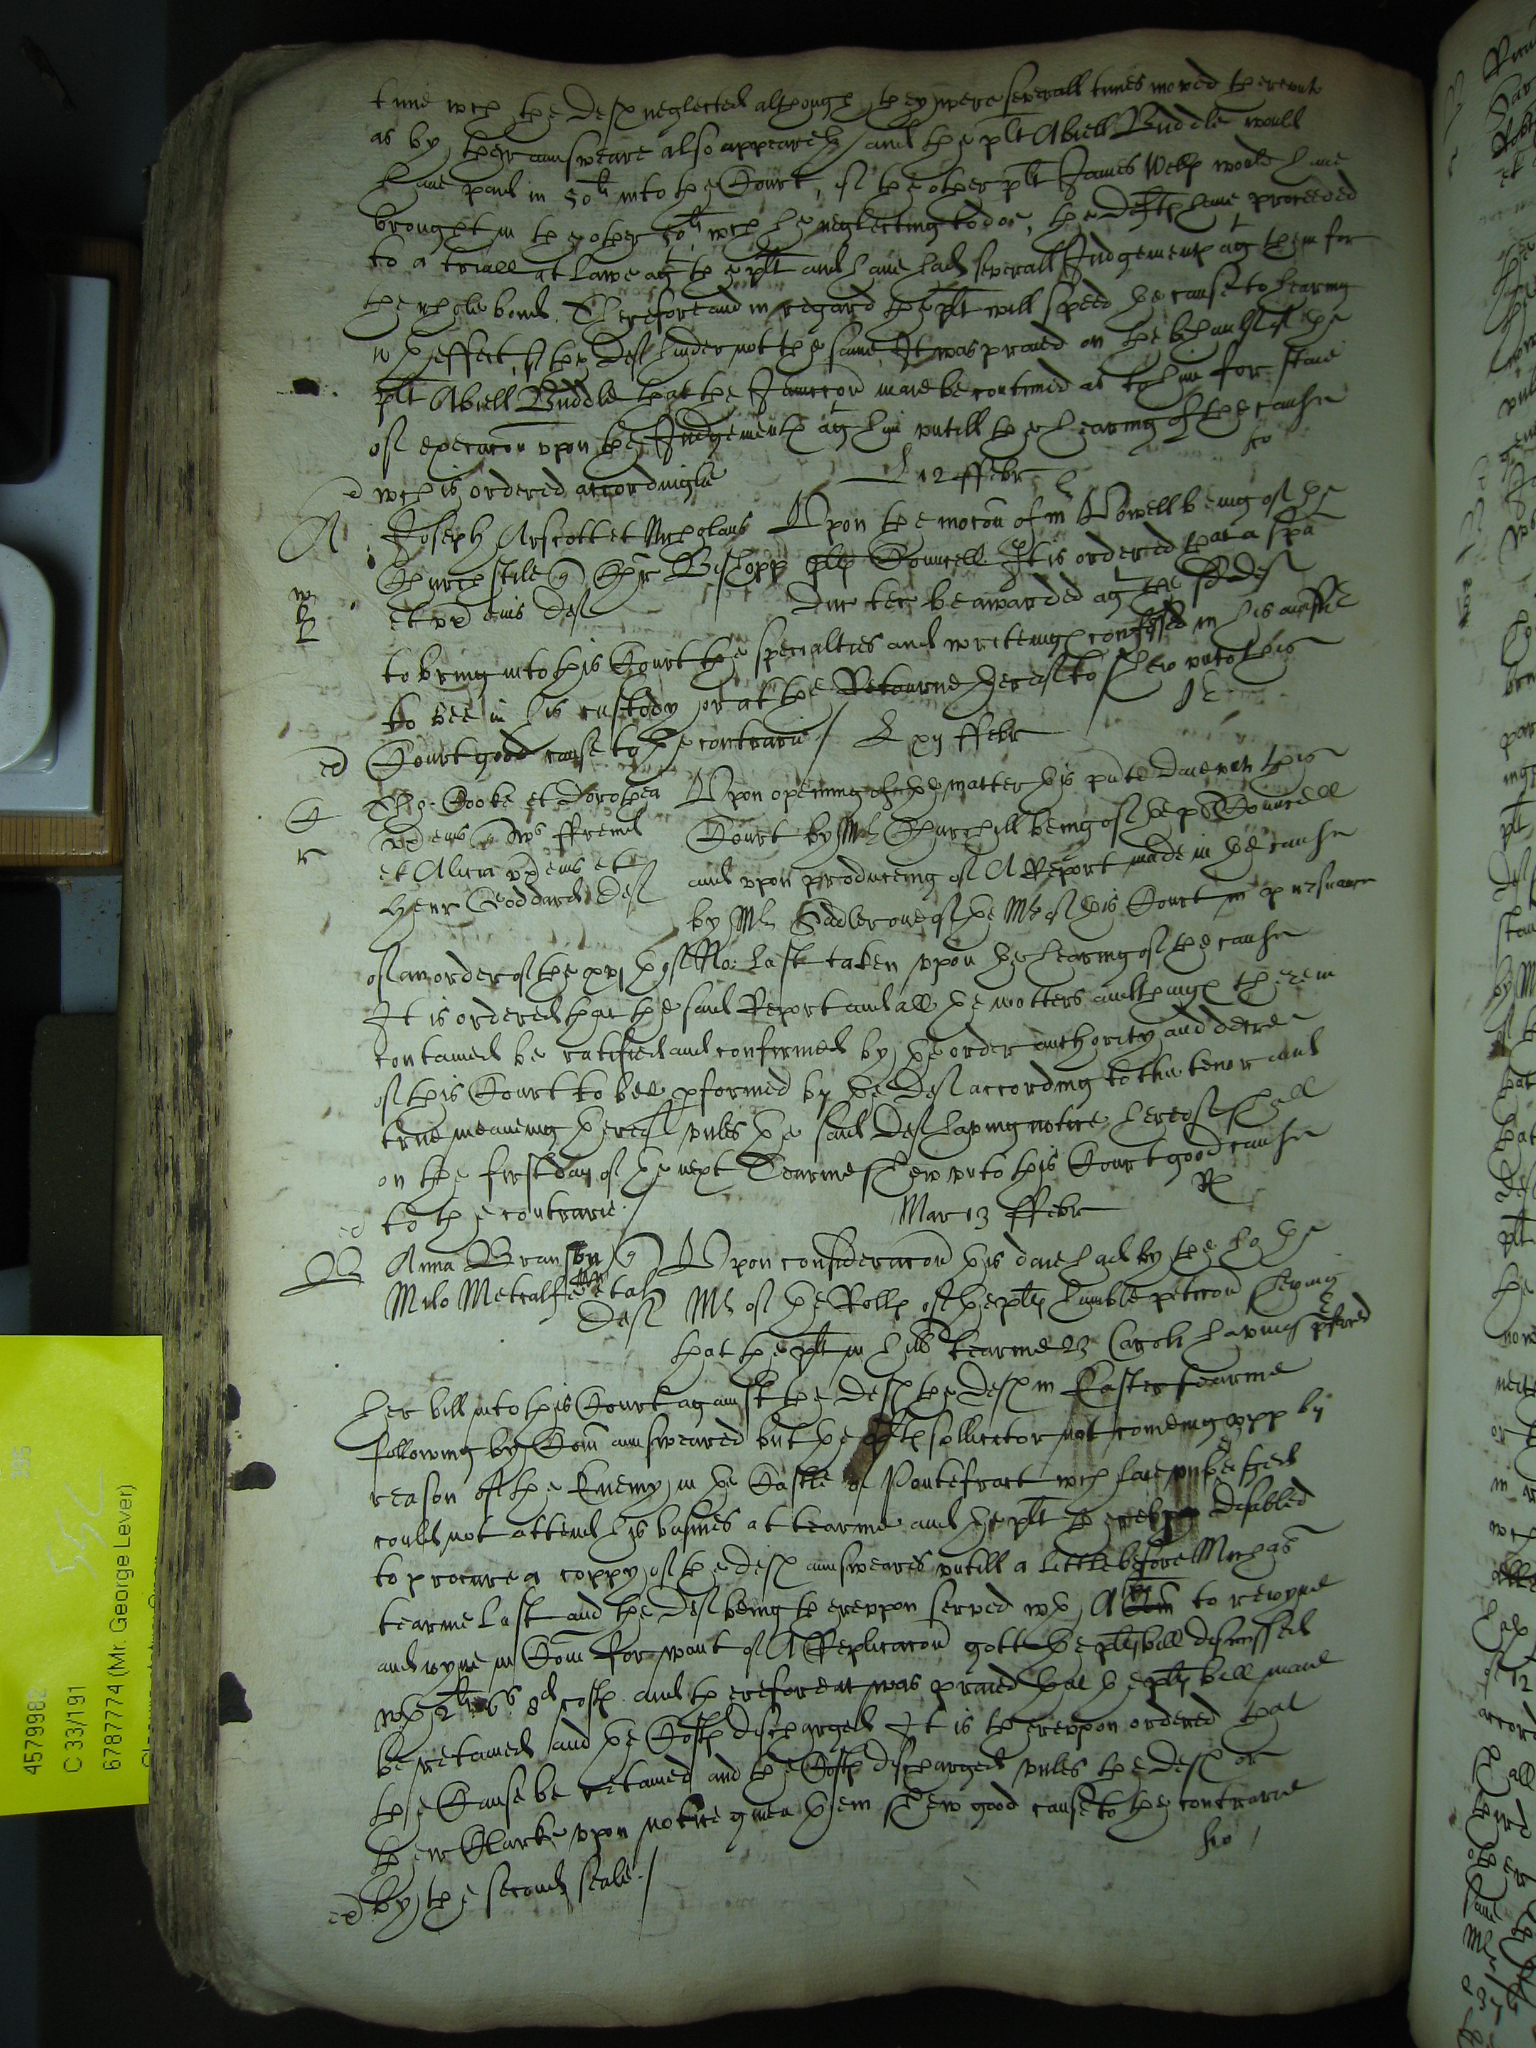 time wch the Deft neglected although they were severall times moved thereunto
as by their answeare also appeareth and the plt Abiell Buddle would
have paid in 50li into the Court, if the other plt James Webb would have
brought in the other 50li wch he neglecting to doe, the Defts have proceeded
to a triall at lawe agt the plt and have had severall Judgements agt them for
the whole bond. Therefore and in regard the plt will speed the cause to hearing
wth effect, if the Deft hinder not the same, It was praied on the behaulf of the
plt Abiell Buddle that the Iniuncon maie be contined as to him for staie
of execucon upon the Judgements agt him untill the hearing of the cause
wch is ordered accordinglie
12 ffebr
Joseph Arscott et Nicholaus
Churchstile
Bishopp
et ux eius Def
Upon the mocon of mr Powell being of the
plts Councell It is ordered that a spa
duc tec be awarded agt the sd Def
to bring into this Court the specialties and writeings confessed in his answere
to bee in his custody or at the Retourne thereof to shew unto this
Court good cause to the contrarie
xij ffebr
Tho: Cooke et Dorothea
ux eius
ffrend
et Alicia ux eius et
Henr Goddard Def
Upon opening of the matter this pnte daie unto this
Court by Mr Churchill being of the plts Councell
and upon produceing of A Report made in the cause
by Mr Sadler one of the Mrs of this Court in pursuance
of an order of the xxj th of No: last taken upon the hearing of the cause
It is ordered that the said Report and all the matters and things therein
contained be ratified and confirmed by the order authority and decree
of this Court to bee pformed by the Def according to the tenor and
true meaning thereof unles the said Def having notice hereof shall
on the first day of the next Tearme shew unto this Court good cause
to the contrarie
Mar 13 ffebr
Anna Branson
Milo Metcalfe et al
Def
Upon consideracon this daie had by the
Mr of the Rolls of the plts humble peticon shewing
that the plt in Hill tearme 23 Caroli having pferred
her bill into this Court against the Defts the Defts in Easter tearme
following by Com answeared but the plts sollicitor not comeing upp by
reason of the Enemy in the Castle of Pontefract wch
could not attend his busines at tearme and the plt thereby disabled
to procure a coppy of the Defts answeares untill a little before Michas
tearme last and the Def being thereupon served wth A to reioyne
and ioyne in Com for want of A Replicacon gott the plts bill dismissed
wth 2li 6s 8d costs and therefore it was praied that the plts bill maie
be retained and the Costs discharged It is thereupon ordered that
the Cause be retained and the Costs discharged unles the Defts or
their Clarke upon notice given them shew good cause to the contrarie
by the second seale
395
55C
4579982
C 33/191
6787774 (Mr. George Lever)